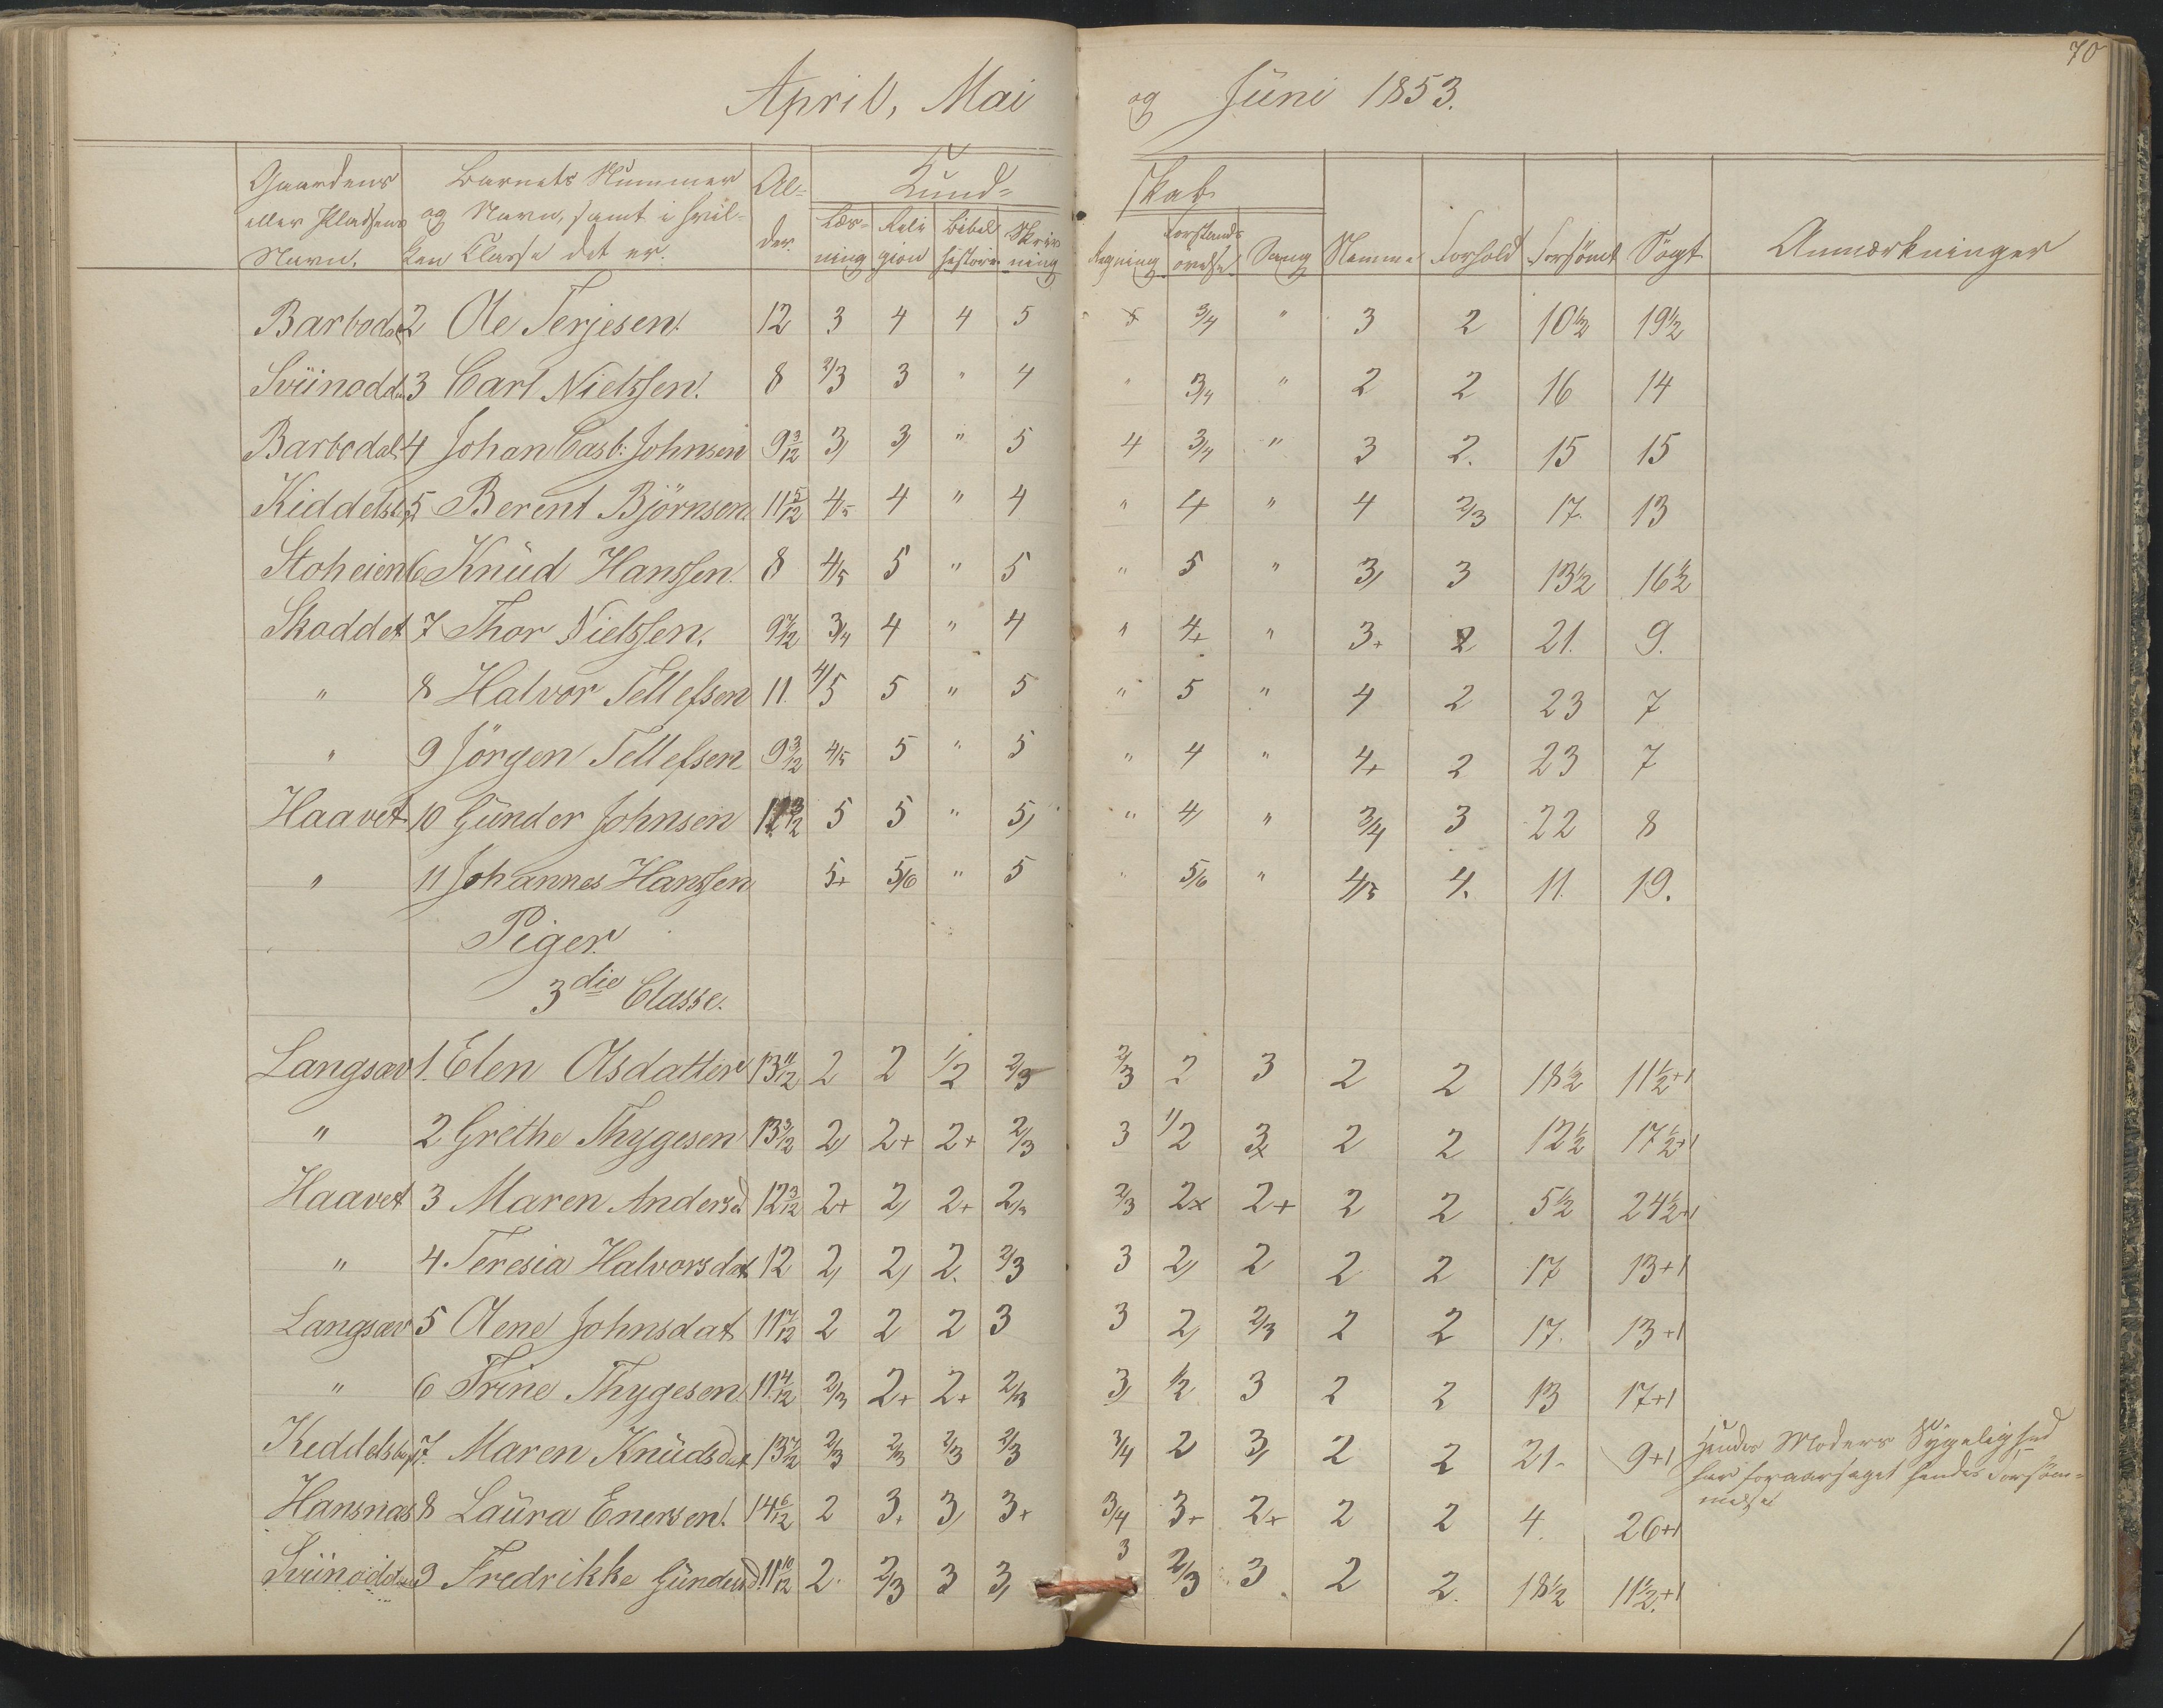 70
April, Mai og Juni 1853.
Gaardens eller Pladsens Navn. | Barnets Nummer og Navn, samt i hvilken Classe det er. | Alder. | Kundskab | Nemme | Forhold | Forsömt | Sögt | Anmærkninger
Læsning | Religion | Bibelhistorie | Skrivning | Regning | Forstandsövelse | Sang
Barbodal 2 Ole Terjesen. 12 3 4 4 5 5 3/4 " 3 2 10½ 19½
Sviinodden 3 Carl Nielssen. 8 2/3 3 " 4 " 3/4 " 2 2 16 14
Barbodal 4 Johan Casb: Johnsen 9 3/12 3, 3, " 5 4 3/4 " 3 2. 15 15
5 Berent Björnsen 11 5/12 4/5 4 " 4 " 4 " 4 2/3 17. 13
Stoheien 6 Knud Hanssen. 8 4/5 5 " 5 " 5 " 3, 3 13½ 16½
Skoddet 7 Thor Nielssen. 9 7/12 3/4 4 " 4 " 4+ " 3+ 2 21. 9.
" 8 Halvor Tellefsen 11. 4/5 5 " 5 " 5 " 4 2 23 7
" 9 Jörgen Tellefsen 9 3/12 4/5 5 " 5 " 4 " 4+ 2 23 7
Haavet 10 Gunder Johnsen 5 5 " 5, " 4, " 3/4 3 22 8
" 11 Johannes Hanssen 5+ 5/6 " 5 " 5/6 " 4/5 4. 11. 19.
Piger.
3die Classe.
Langsæv 1. Elen Olsdatter 13 11/12 2 2 1/2 2/3 2/3 2 3 2 2 18½ 11½+1
" 2 Grethe Thygesen 13 3/12 2, 2+ 2+ 2/3 3 1/2 3+ 2 2 12½ 17½+1
Haavet 3 Maren Andersd 12 3/12 2+ 2, 2+ 2/3 2/3 2+ 2+ 2 2 5½ 24½+1
" 4. Teresia Halvorsdat 12 2, 2, 2. 2/3 3 2, 2 2 2 17 13+1
Langsæv 5 Olene Johnsdat 11 7/12 2 2 2 3 3 2, 2/3 2 2 17. 13+1
" 6 Trine Thygesen 11 4/12 2/3 2+ 2+ 2/3 3, 1/2 3 2 2 13 17+1
7. Maren Knudsdat 13 7/12 2/3 2/3 2/3 2/3 3/4 2 3, 2 2 21. 9+1 Hendes Moders Sygelighed
har foraarsaget hendes Forsöm=
melse
Hansnæs 8 Laura Enersen. 14 6/12 2 3+ 3, 3+ 3/4 3+ 2+ 2 2 4. 26+1
Sviinodden 9 Fredrikke Gundersd 11 10/12 2. 2/3 3 3, 3 2/3 3 2 2. 18½ 11½+1